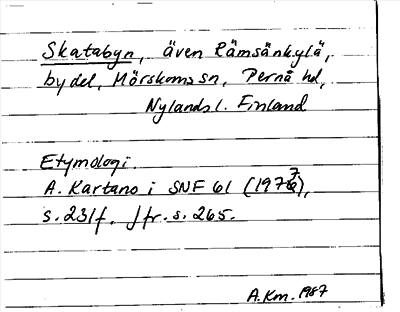 Skatabyn, även Rämsänkylä,
bydel, Mörskoms sn, Pernå hd,
Nylands l. Finland
Etymologi.
A. Kartano i SNF 61 (1977),
s. 231f. Jfr. s. 265.
A.Km. 1987